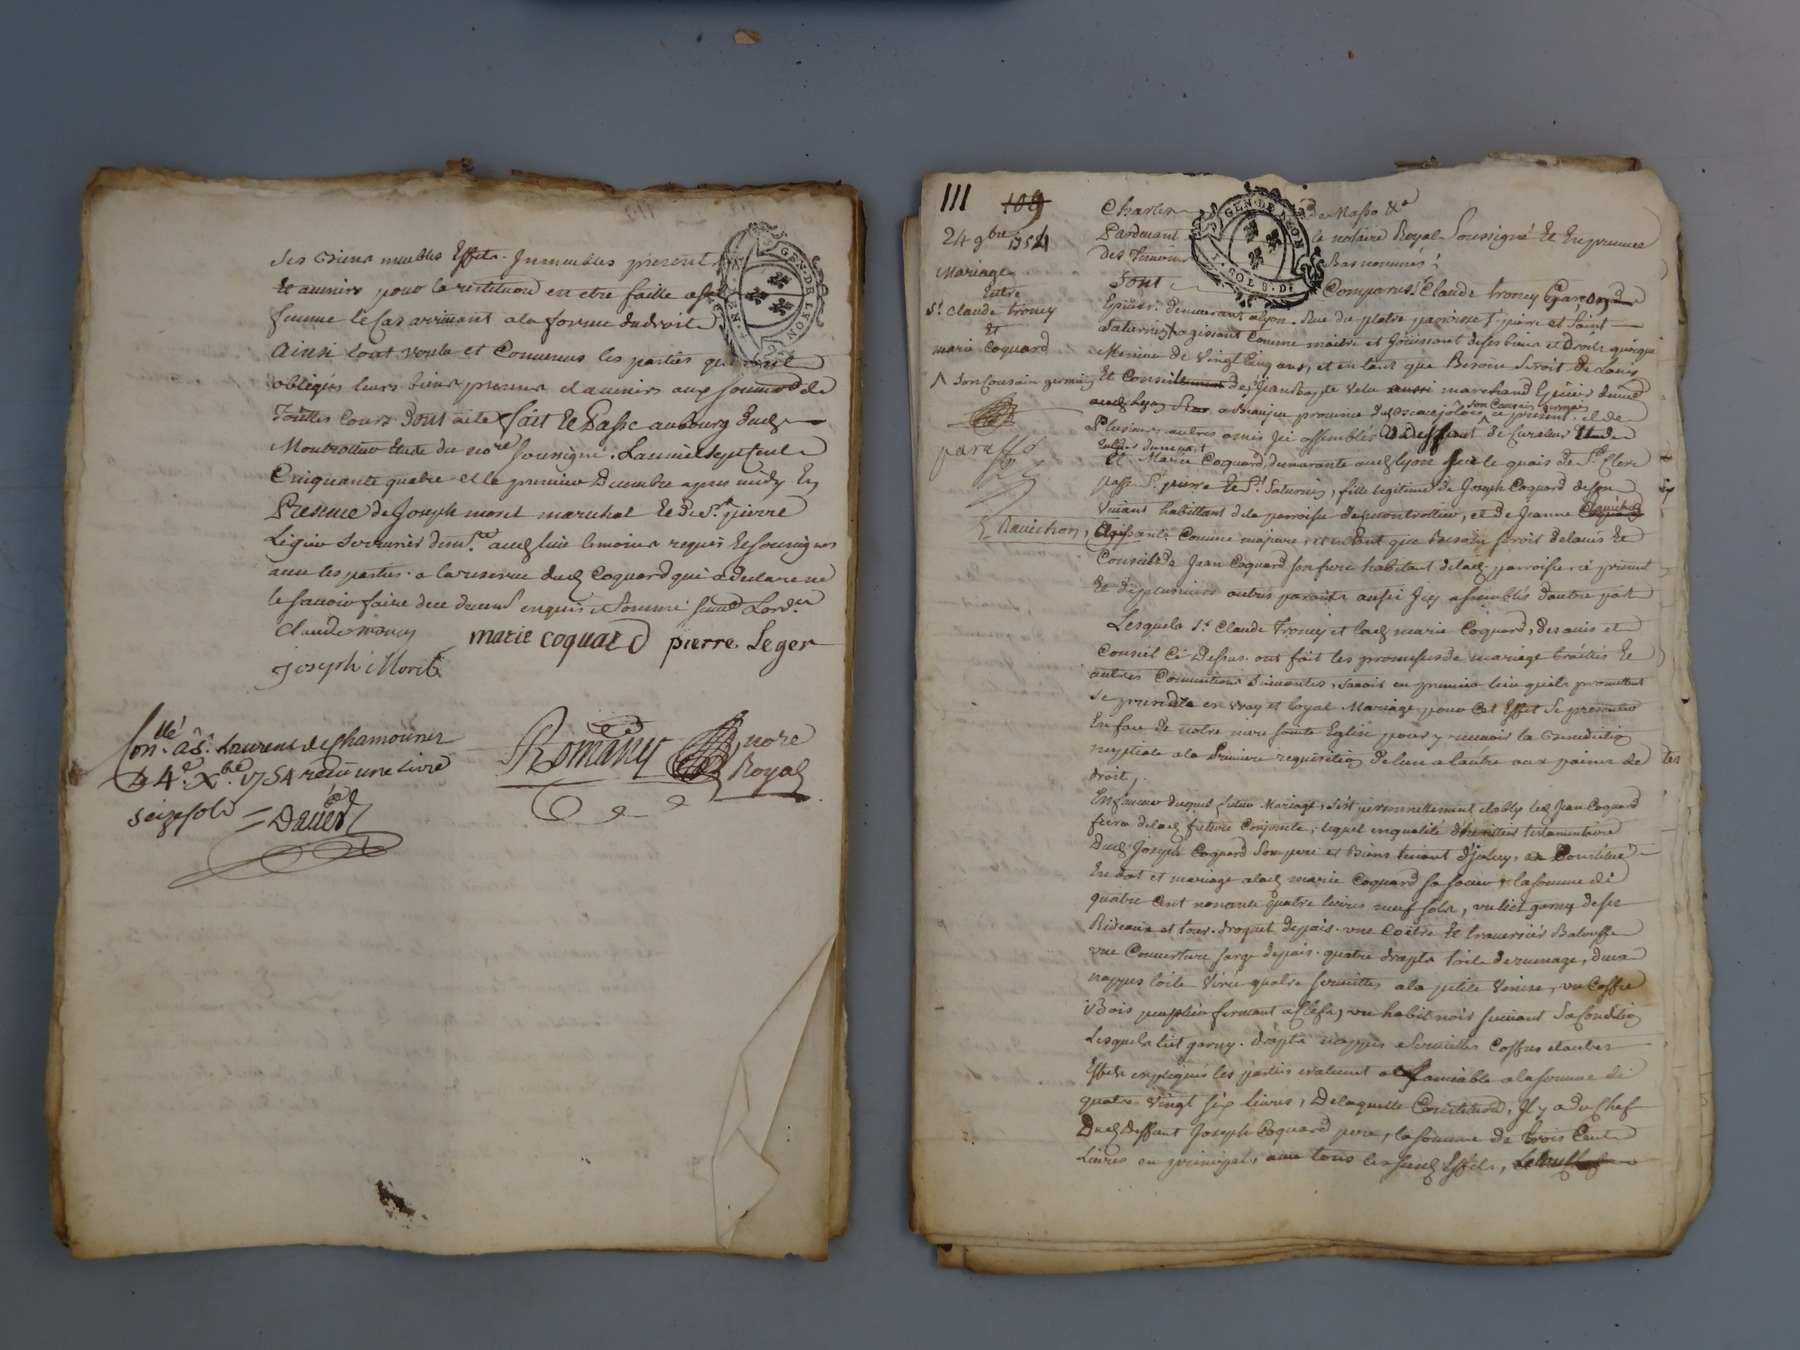 ses biens meubles Effets Immeubles presents
et avenirs pour la restitution en etre faitte a sa
femme le Cas arrivant a la forme du droit
Ainsi tout voulu et Convenus les parties qui ont
obligés leurs biens presents et avenirs aux soumissions de
Touttes Cours Dont acte fait et Passé au bourg dud
Montrottier Etude du nore soussigné. L'an mil sept Cent
Cinquante quatre et le premier Decembre apres midy En
Presence de Joseph moret marechal et de Sr. pierre
Legier serrurier demts. aud lieu temoins requis et soussignés
avec les parties. a la reserve dud Coquard qui a declaré ne
le sçavoir faire de ce deument enquis et sommé
Claude troncy
marie coquard pierre Leger
Joseph Moret
Conllé à St. Laurent de Chamousset
le 4e. Xbre 1754 reçu une livre
seize sols
= Daved
Romany nore
Royal
GEN. DE LYON
111 109
24 9bre 1754
Mariage
Entre
Sr. Claude troncy
et
marie Coquard
^ son Cousin germain
paraffé
Danichon,
GEN. DE LYON
Charles de Masso &a
Pardevant le notaire Royal Soussigné Et En presence
des Temoins Bas nommés
Sont Comparus Claude troncy Garçon
Epicier. demeurant a lyon. Rue du platre parroisse St. pierre et Saint
Saturnin agissant Comme maitre et Jouissant de ses biens et Droits quoique
Mineur de Vingt Cinq ans, et en tant que Besoin Seroit de L'avis
Et Conseil de Jean Bapte Velu aussi marchand Epicier demt
a Beaujeu province du Beaujolois son Cousin germain a ce present, et de
Plusieurs autres amis Jci assemblés a Deffaut de Curateur
Et Marie Coquard, demeurante aud lyon sur le quais de St. Clair
passe St. pierre et St. Saturnin, fille legitime de Joseph Coquard de son
Vivant habittant de la parroisse de montrottier, et de Jeanne
Agissante Comme majeure, et en tant que Besoin seroit de l'avis Et
Conseil de Jean Coquard son frere habitant de lad. parroisse ci present
Et de plusieurs autres parents aussi Jcy assemblés d'autre part
Lesquels Sr. Claude Troncy et lad marie Coquard, des avis et
Conseil Ci Dessus. ont fait les promesses de mariage traittés Et
autres Conventions Suivantes, sçavoir en premier lieu qu'ils promettent
Se prendre en vray et loyal Mariage, pour Cet Effet Se presenter
En face de notre mere sainte Eglise pour y recevoir la Benediction
nuptiale a la Premiere requisition De l'un a l'autre aux peines de
droit,
En faveur duquel futur Mariage, s'est personnellement etably led Jean Coquard
frere de lad future Conjointe, lequel en qualité d'heritier testamentaire
Dud Joseph Coquard Son pere et Biens tenant d'jceluy, a Constitué
En dot et mariage a lad marie Coquard sa soeur, la somme de
quatre cent nonante quatre livres neuf sols, un lict garny de ses
Rideaux et tour. droguet de pais. une Coëtre Et traversier Balouffe
une Couverture sarge de pais. quatre draps toile de menage, deux
nappes toile Virée quatre serviettes a la petite Venise, un Coffre
Bois peuplier fermant a Clefs, un habit noir suivant sa Condition
Lesquels lict garny. draps nappes Serviettes Coffres et autres
Effets expliqués les parties evaluent a l'amiable a la somme de
quatre Vingt six livres, De laquelle Constitution, Jl y a du Chef
Dud deffunt Joseph Coquard pere, la somme de Trois Cent
Livres en principal, avec tous les susd Effets,